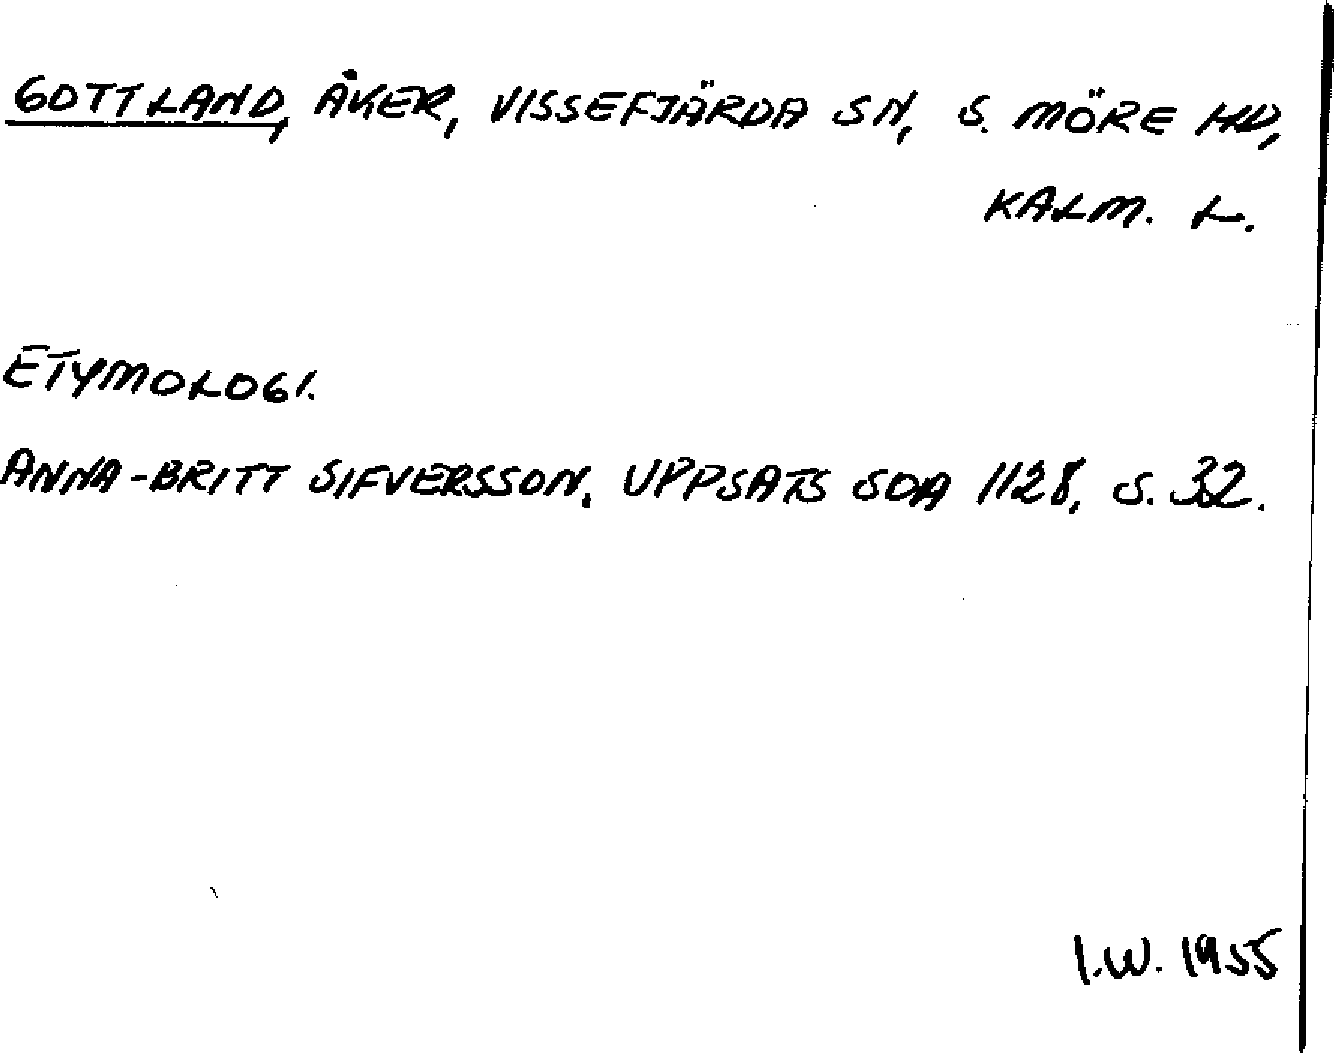 GOTTLAND, ÅKER, VISSEFJÄRDA SN, S. MÖRE HD,
KALM. L.
ETYMOLOGI.
ANNA-BRITT SIFVERSSON. UPPSATS SOA 1128, S. 32.
I.W. 1955